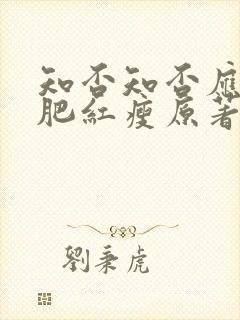 知否知否應
肥紅瘦原著
劉秉虎